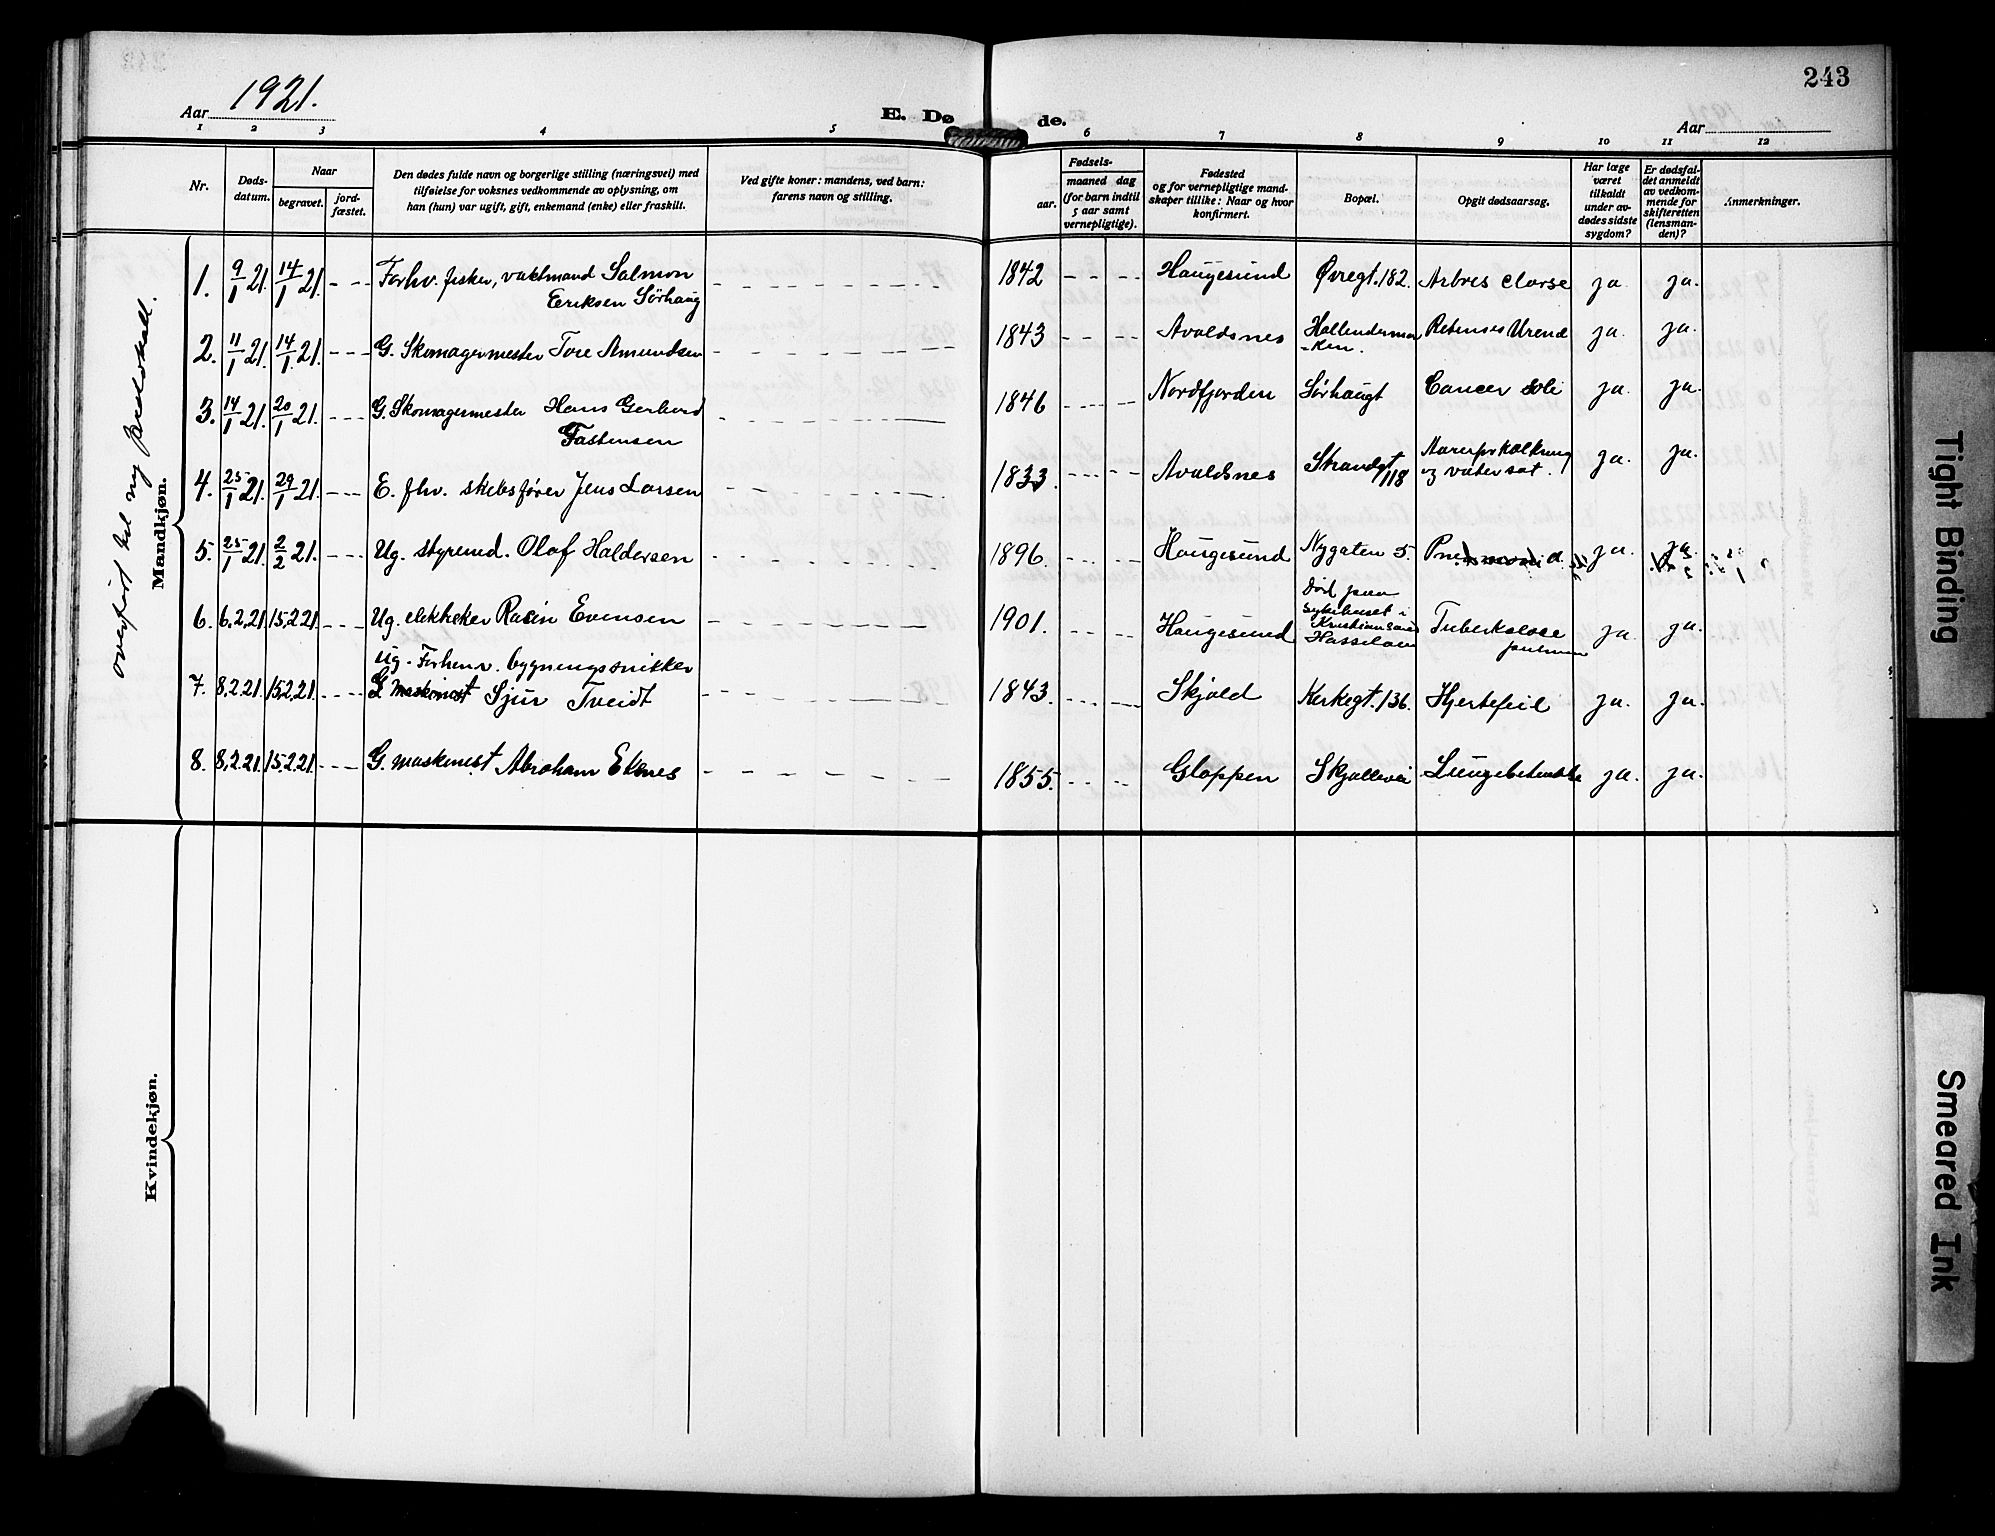 Aar 1921.
E. Dø de.
243
Aar
1 2 3 4 5 6 7 8 9 10 11 12
Nr.
Døds-
datum.
Naar
begravet.
jord-
fæstet.
Den dødes fulde navn og borgerlige stilling (næringsvei) med
tilføielse for voksnes vedkommende av oplysning, om
han (hun) var ugift, gift, enkemand (enke) eller fraskilt.
Ved gifte koner: mandens, ved barn:
farens navn og stilling.
Fødsels-
aar.
maaned dag
(for barn indtil
5 aar samt
vernepligtige).
Fødested
og for vernepligtige mand-
skaper tillike: Naar og hvor
konfirmert.
Bopæl.
Opgit dødsaarsag.
Har læge
været
tilkaldt
under av-
dødes sidste
sygdom?
Er dødsfal-
det anmeldt
av vedkom-
mende for
skifteretten
(lensman-
den)?
Anmerkninger.
overført til ny protokoll.
Mandkjøn.
1. 9/1 21. 14/1 21. - - Forhv. fisker, vaktmand Salmon
Eeriksen Sørhaug
1842 Haugesund Øvregt. 182. ja ja.
2. 11/1 21. 14/1 21. - - - G. Skomagermester Tore Amundsen
1843 Avaldsnes ja. ja.
3. 14/1 21. 20/1 21. - - - G. Skomagermester Hans Gerhard
Fastensen
1846 Nordfjorden Sørhaugt Cancer ja. ja.
4. 25/1 21. 29/1 21. - - - E. fhv. skibsfører Jens Larsen
1833. Avaldsnes Strandgt 118 Aareforkalkning
og vatersot. ja. ja.
5. 25/1 21. 2/2 21. - - - Ug. styrmd. Olaf Haldorsen
1896. Haugesund Nygaten 5. ja. ja.
6. 6.2.21. 15.2.21. - - - Ug. Rasin Evensen
1901. Haugesund Død paa
sykehuset i
Tuberkulose
ja. ja.
Ug. Forhenv. bygningssnikker
7. 8.2.21. 15.2.21. - - - G. maskinist Sjur Tveidt
1843. Skjold Kirkegt. 136. Hjertefeil ja. ja.
8. 8.2.21. 15.2.21. - - - G. maskinist Abraham Eknes
1855. Gloppen ja. ja.
Kvindekjøn.
Tight Binding
Smeared Ink